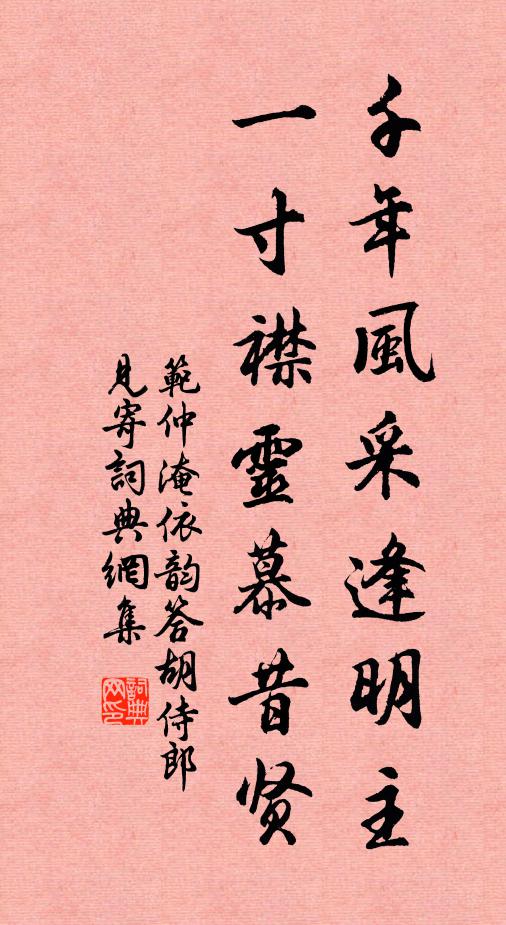 千年風采逢明主
一寸襟靈慕昔贤
範仲淹依韵答胡侍郎
見寄詞典網集
詞典
网印